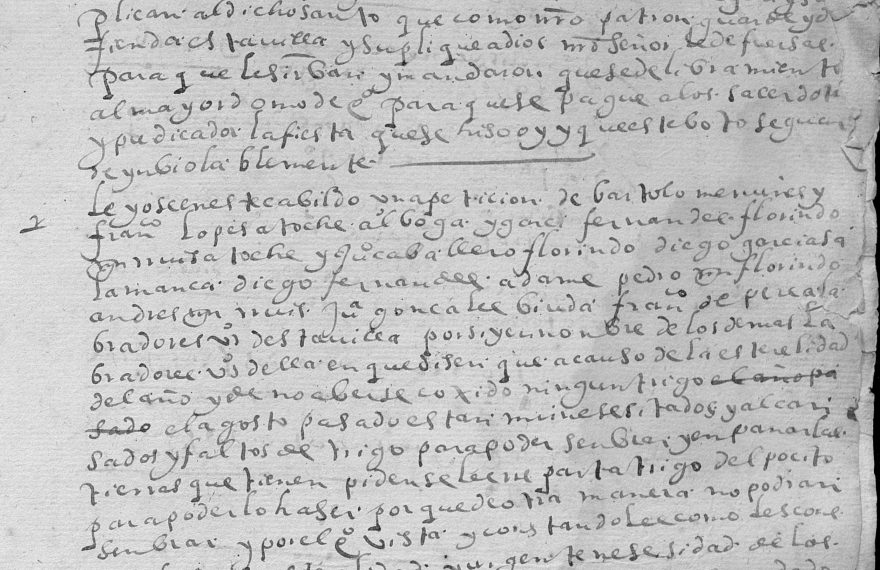 plican al dicho santo que como nro patron guarde y de
fienda esta villa y suplique a dios nro señor le de fuersas
para que le sirban y mandaron que se de libramiento
al mayordomo del qº para que se pague a los sacerdotes
y predicador la fiesta que se hiso oy y que este boto se guar
de ynbiolablemente
leyose en este cabildo una peticion de bartolome nuñes y
franco lopes atoche alº boga y gonº fernandes florindo
mn ruis atoche y quº caballero florindo diego garcia sa
lamanca diego fernandes adame pedro mn florindo
andres mn ruis juº gonçales biuda franco de perea la
bradores vºs desta villa por si y en nonbre de los demas la
bradores vºs della en que disen que a causa de la esterelidad
del año y de no aberse coxido ningun trigo el año pa
sado el agosto pasado estan mui nesesitados y alcan
sados y faltos de trigo para poder senbrar y enpanar las
tierras que tienen piden se les reparta trigo del pocito
para poderlo haser porque de otra manera no podran
senbrar y por el qº vista y constandoles como les cons